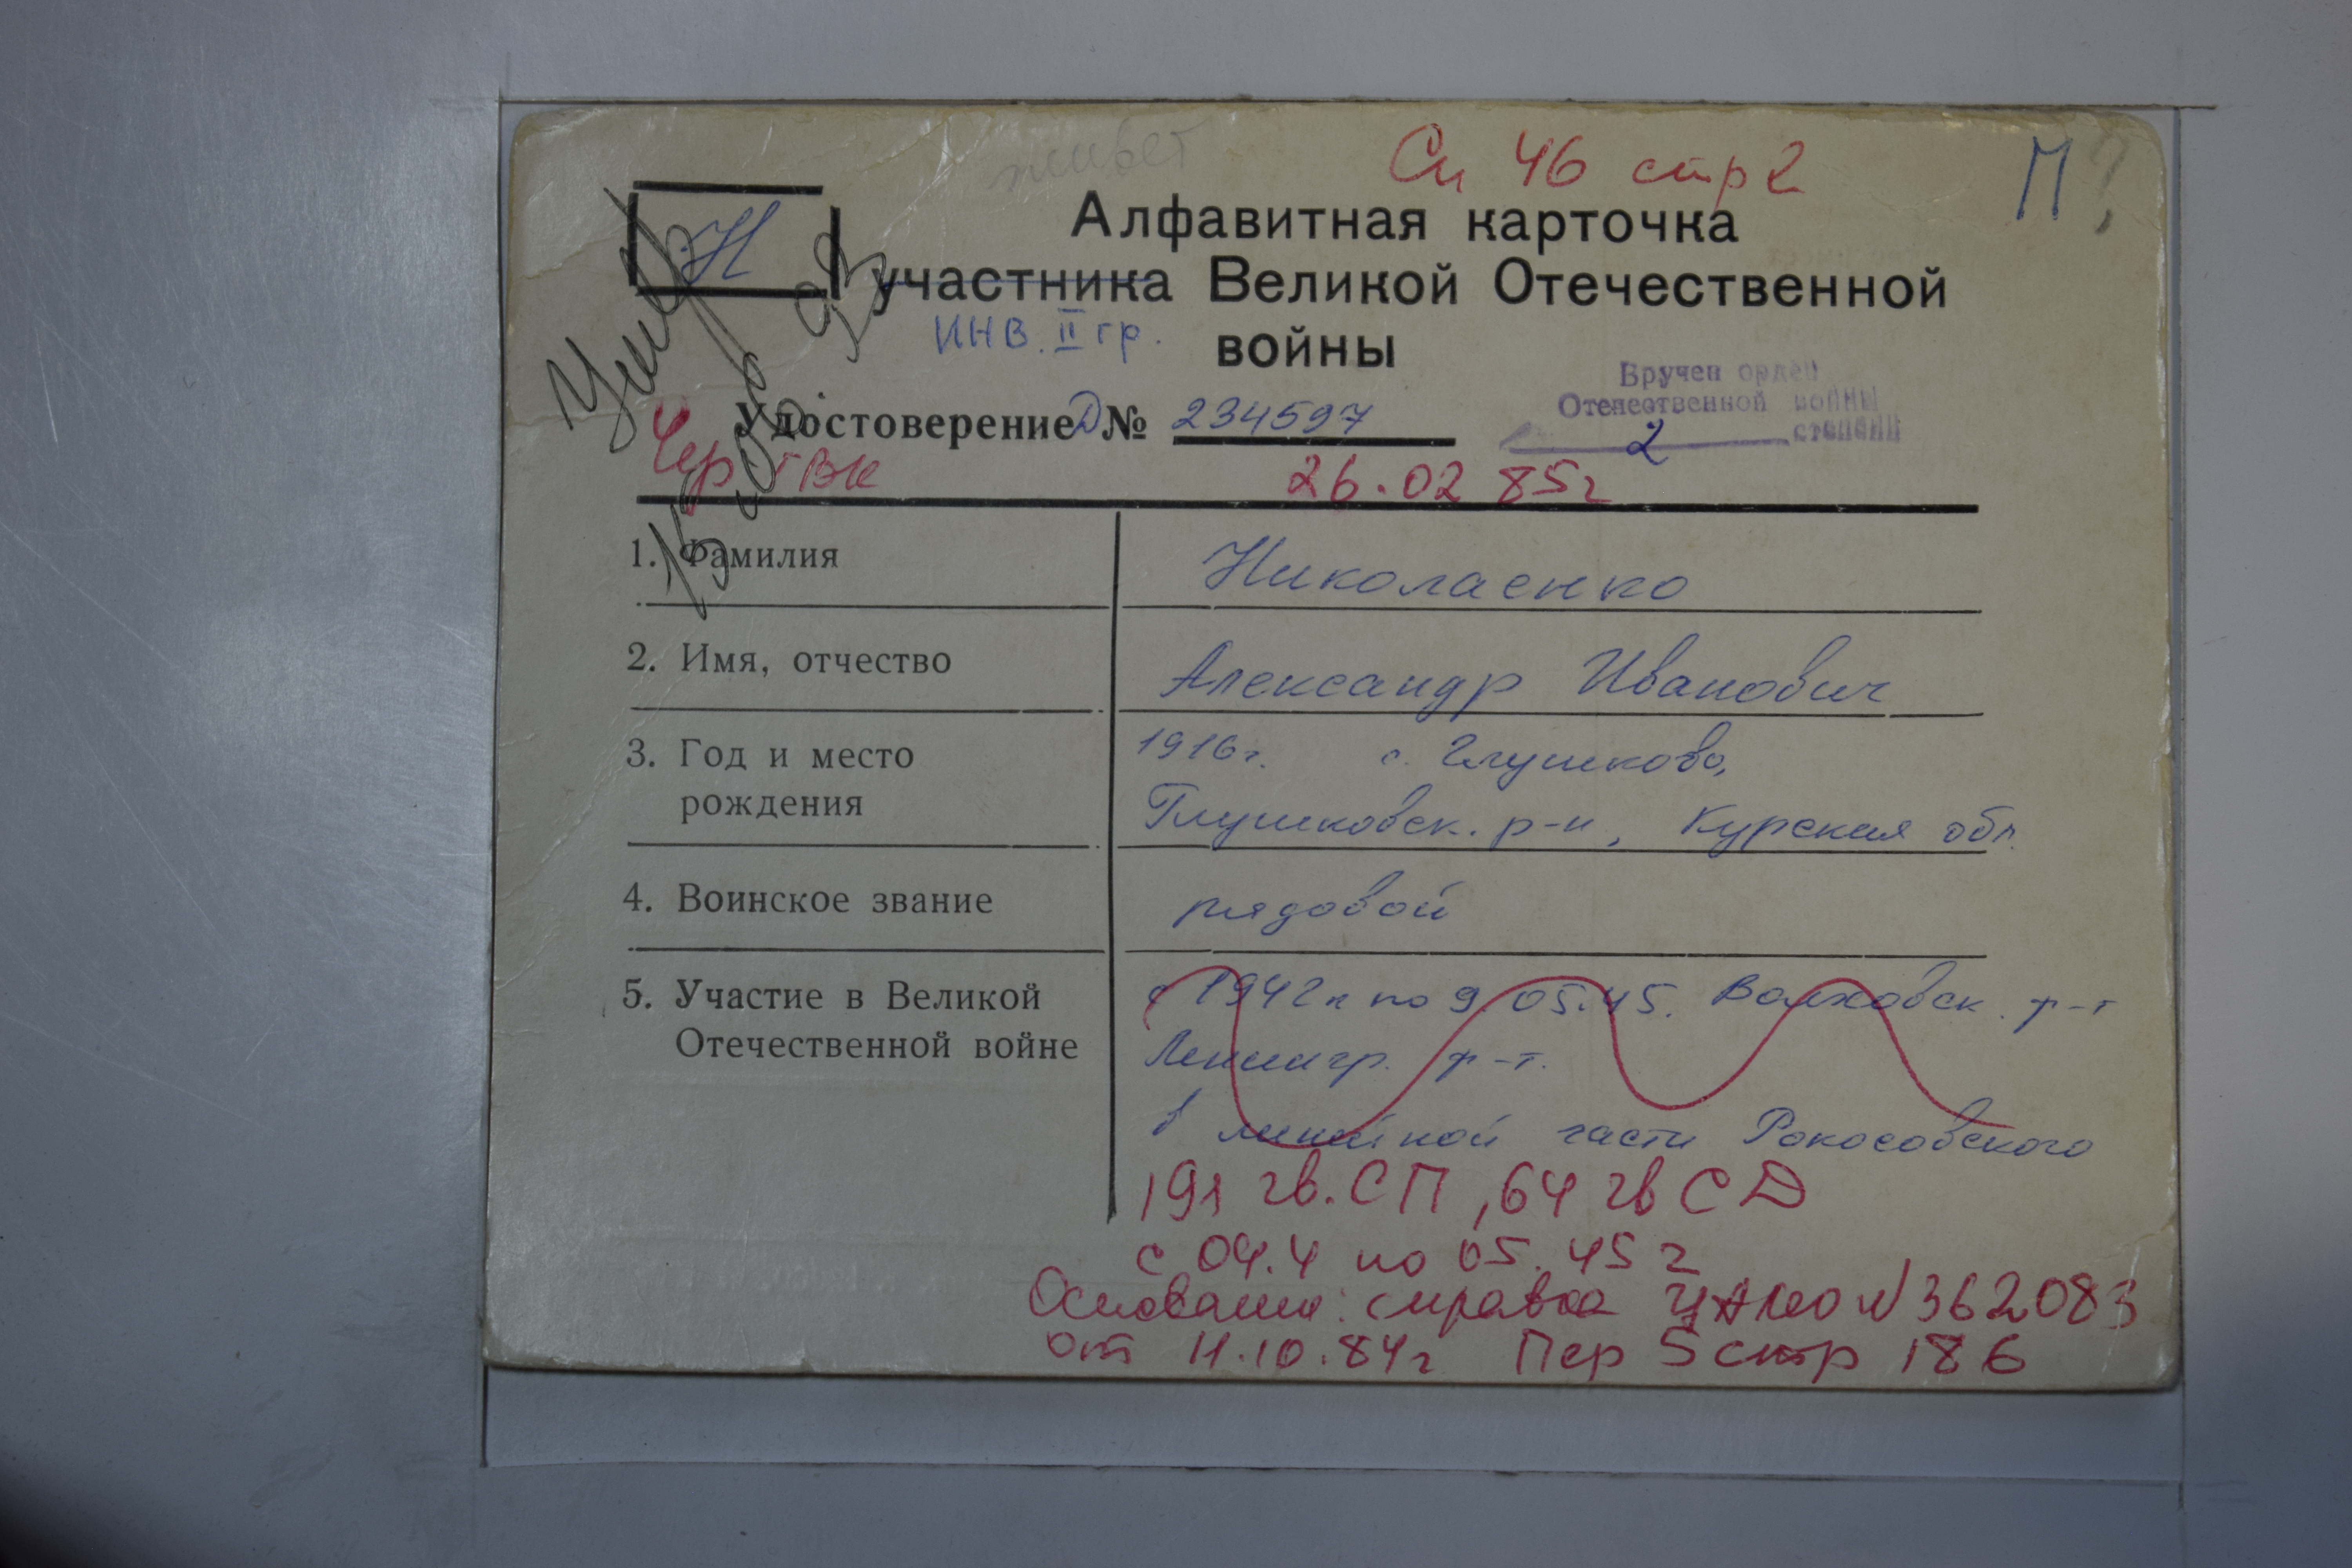 живет
Сп 46 стр 2
П ?
Н
Алфавитная карточка
участника Великой Отечественной
ИНВ. II гр.
войны
Умер
Вручен орден
Отечественной войны
2 степени
Удостоверение Д № 234597
Чер ГВК
26.02 85г
1. Фамилия
Николаенко
2. Имя, отчество
Александр Иванович
3. Год и место
рождения
1916г. с. Глушково,
Глушковск. р-н, Курская обл.
4. Воинское звание
рядовой
5. Участие в Великой
Отечественной войне
с 1942г по 9.05.45. Волховск. ф-т
Ленингр. ф-т.
в линейной части Рокосовского
191 гв. СП, 64 гв СД
с 04.4 по 05.45 г
Основание: справка ЦАМО N 362083
от 11.10.84г Пер 5 стр 186